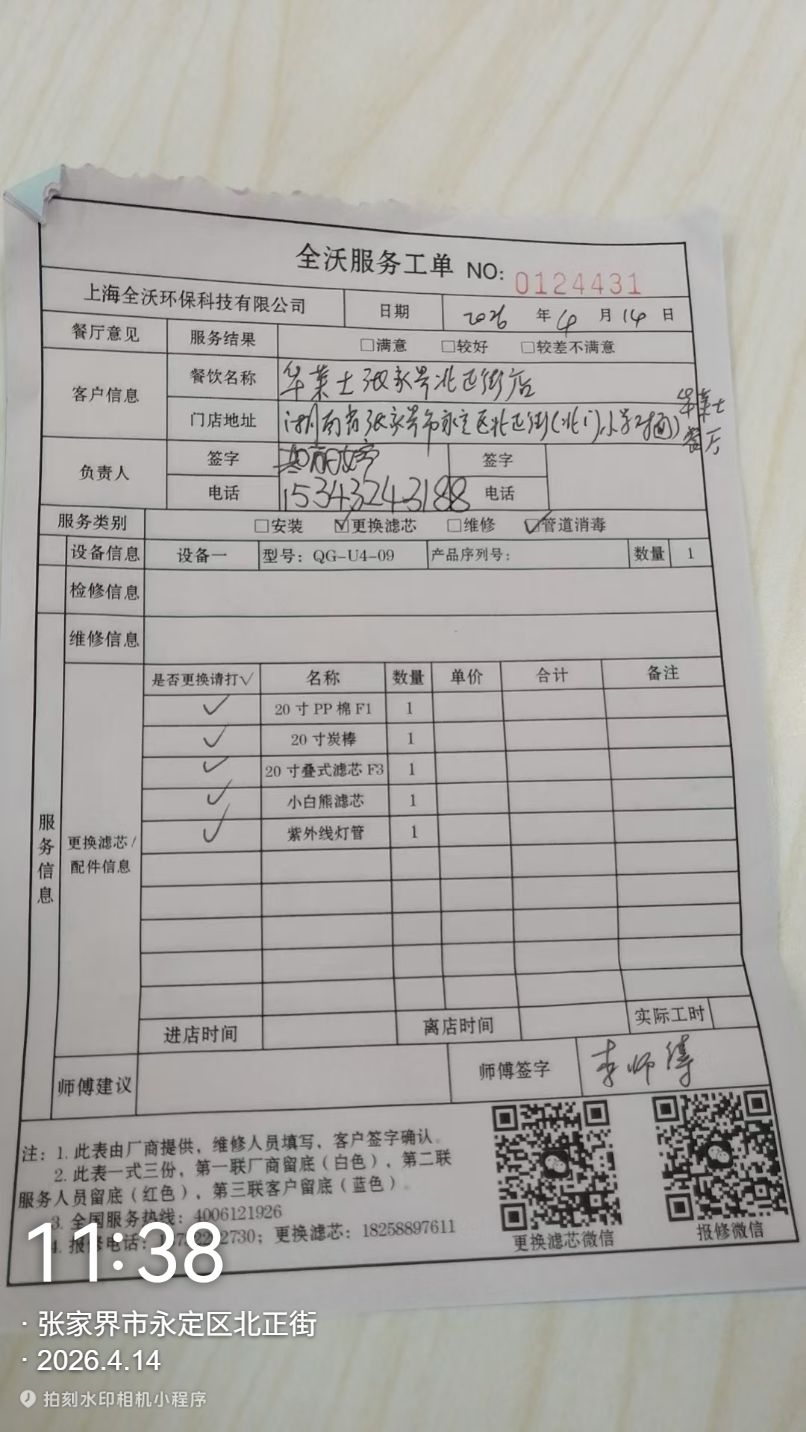 全沃服务工单 NO: 0124431
上海全沃环保科技有限公司 日期 2026 年 4 月 14 日
餐厅意见 服务结果 □满意 □较好 □较差不满意
客户信息 餐饮名称 华莱士张家界北正街店
门店地址 湖南省张家界市永定区北正街(北门小学对面)华莱士餐厅
负责人 签字 签字
电话 15343243188 电话
服务类别 □安装 ☑更换滤芯 □维修 ☑管道消毒
设备信息 设备一 型号：QG-U4-09 产品序列号： 数量 1
检修信息
维修信息
服务信息
更换滤芯/配件信息
是否更换请打√ 名称 数量 单价 合计 备注
✓ 20寸PP棉F1 1
✓ 20寸炭棒 1
✓ 20寸叠式滤芯F3 1
✓ 小白熊滤芯 1
✓ 紫外线灯管 1
进店时间 离店时间 实际工时
师傅建议 师傅签字 李师傅
注：1. 此表由厂商提供，维修人员填写、客户签字确认。
2. 此表一式三份，第一联厂商留底（白色），第二联
服务人员留底（红色），第三联客户留底（蓝色）。
3. 全国服务热线：4006121926
4. 报修电话： 更换滤芯：18258897611
更换滤芯微信 报修微信
11:38
· 张家界市永定区北正街
· 2026.4.14
拍刻水印相机小程序